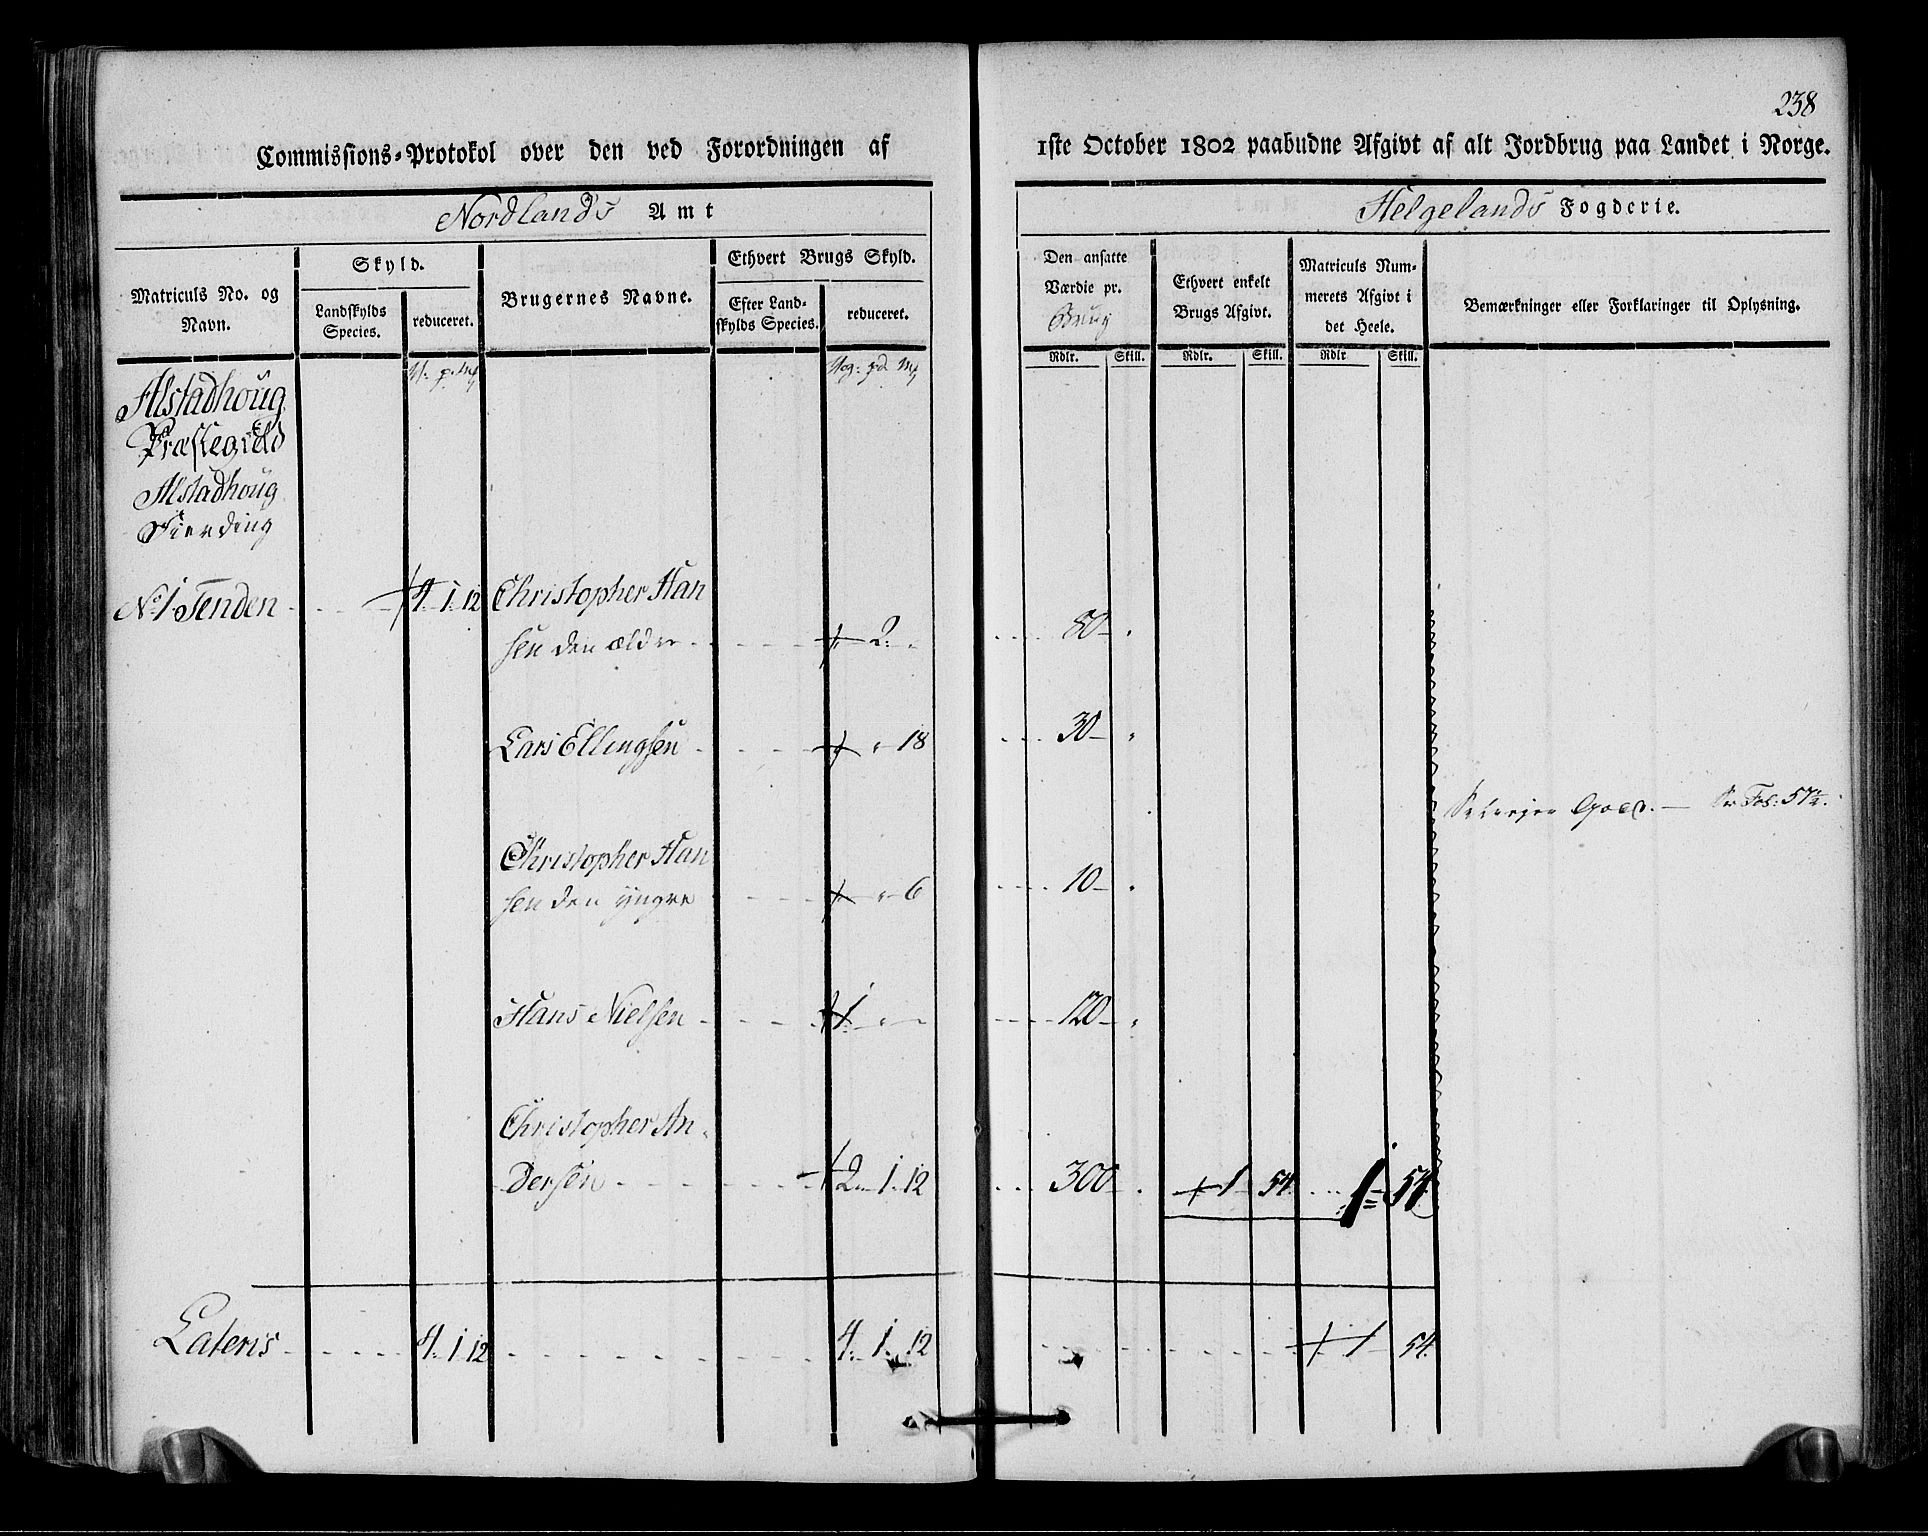 238
Commissions-Protokol over den ved Forordningen af 1ste October 1802 paabudne Afgivt af alt Jordbrug paa Landet i Norge.
Nordlands Amt
Helgelands Fogderie.
Matriculs No. og Navn.
Skyld.
Landskylds Species.
reduceret.
Brugernes Navne.
Ethvert Brugs Skyld.
Efter Landskylds Species.
reduceret.
Den ansatte Værdie pr. Brug
Ethvert enkelt Brugs Afgivt.
Matriculs Nummerets Afgivt i det Heele.
Bemærkninger eller Forklaringer til Oplysning.
Rdlr. Skill. Rdlr. Skill. Rdlr Skill.
Alstadhoug
Præstegield
Alstadhoug
Fierding
No 1 Tenden 4. 1. 12 Christopher Han
sen den ældre 2. 80
Lars Ellingsen 18 30
Fol: 57
Christopher Han
sen den yngre 6 10
Hans Nielsen 1. 120
Christopher An
dersen 2. 1. 12 300 1 54. 1 54
Lateris 4. 1. 12 4. 1. 12 1 54.